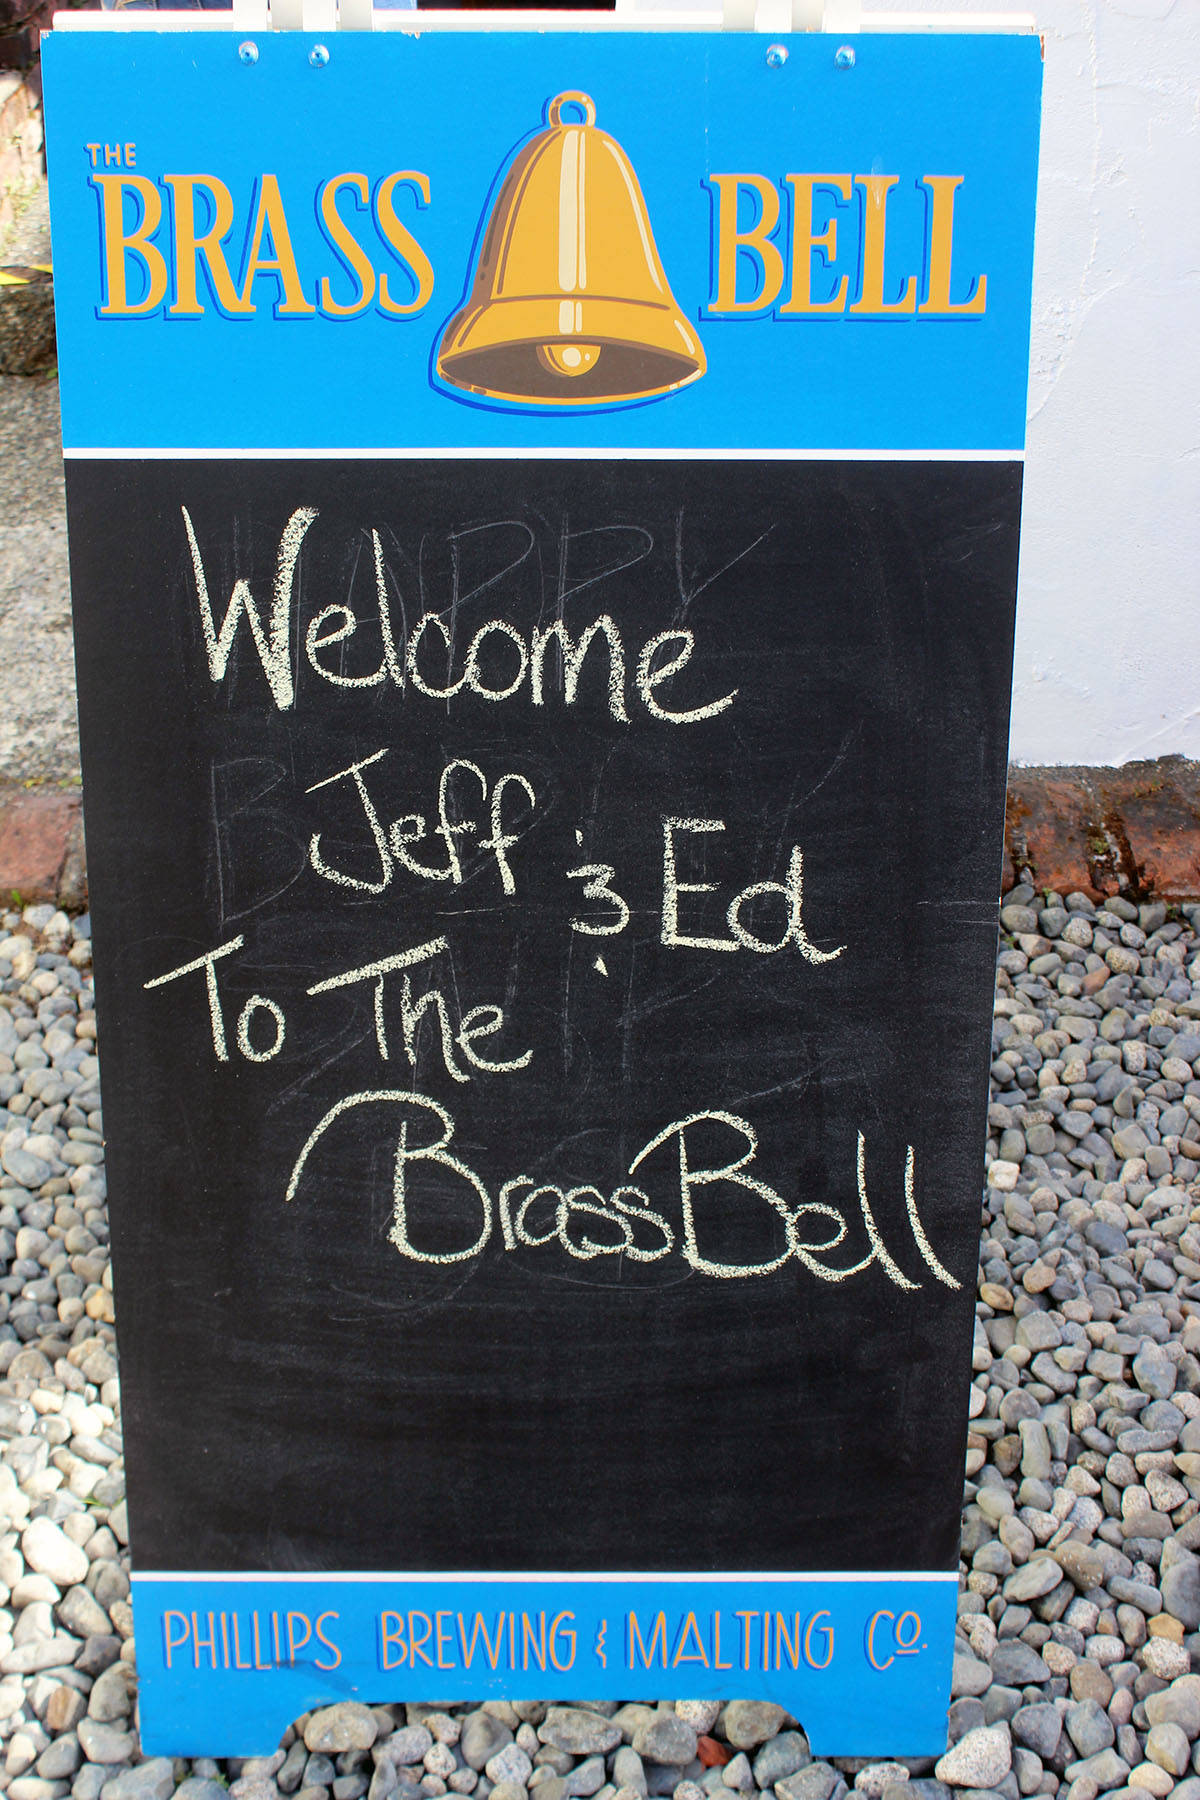 THE
BRASS BELL
Welcome
Jeff & Ed
To The
Brass Bell
PHILLIPS BREWING & MALTING Co.